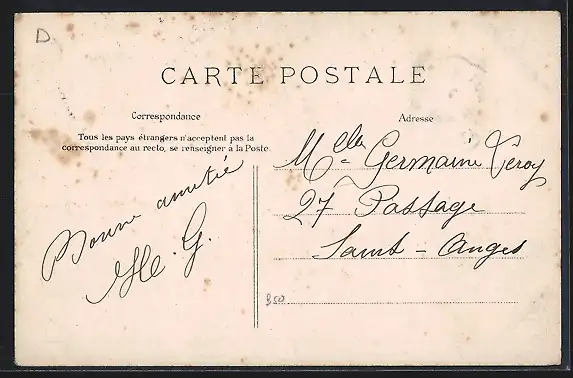 D
CARTE POSTALE
Correspondance
Tous les pays étrangers n'acceptent pas la
correspondance au recto, se renseigner à la Poste
Bonne amitié
G.
Adresse
Melle Germaine Veroy
27 Passage
Saint - Anges
350